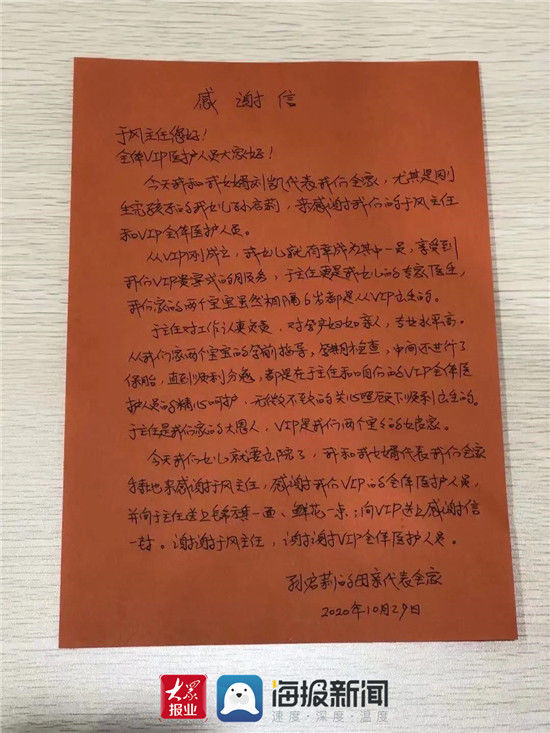 感谢信
于风主任您好！
全体VIP医护人员大家好！
今天我和我女婿刘凯代表我们全家，尤其是刚
生完孩子的我女儿孙启莉，来感谢我们的于风主任
和VIP全体医护人员。
从VIP刚成立，我女儿就荷幸成为其中一员，享受到
我们VIP贵宾式的服务，于主任更是我女儿的专家医生，
我们家的两个宝宝虽然相隔6岁都是从VIP出生的。
于主任对工作认真负责，对孕产妇如亲人，专业水平高。
从我们家两个宝宝的孕前指导，孕期检查，中间还进行了
保胎，直到顺利分娩，都是在于主任和咱们的VIP全体医
护人员的精心呵护，无微不至的关心照顾下顺利出生的。
于主任是我们家的大恩人，VIP是我们两个宝宝的娘家。
今天我们女儿就要出院了，我和我女婿代表我们全家
特地来感谢于风主任，感谢我们VIP的全体医护人员，
并向于主任送上锦旗一面、鲜花一束；向VIP送上感谢信
一封。谢谢于风主任，谢谢VIP全体医护人员。
孙启莉的母亲代表全家
2020年10月29日
大众报业 海报新闻
速度·深度·温度